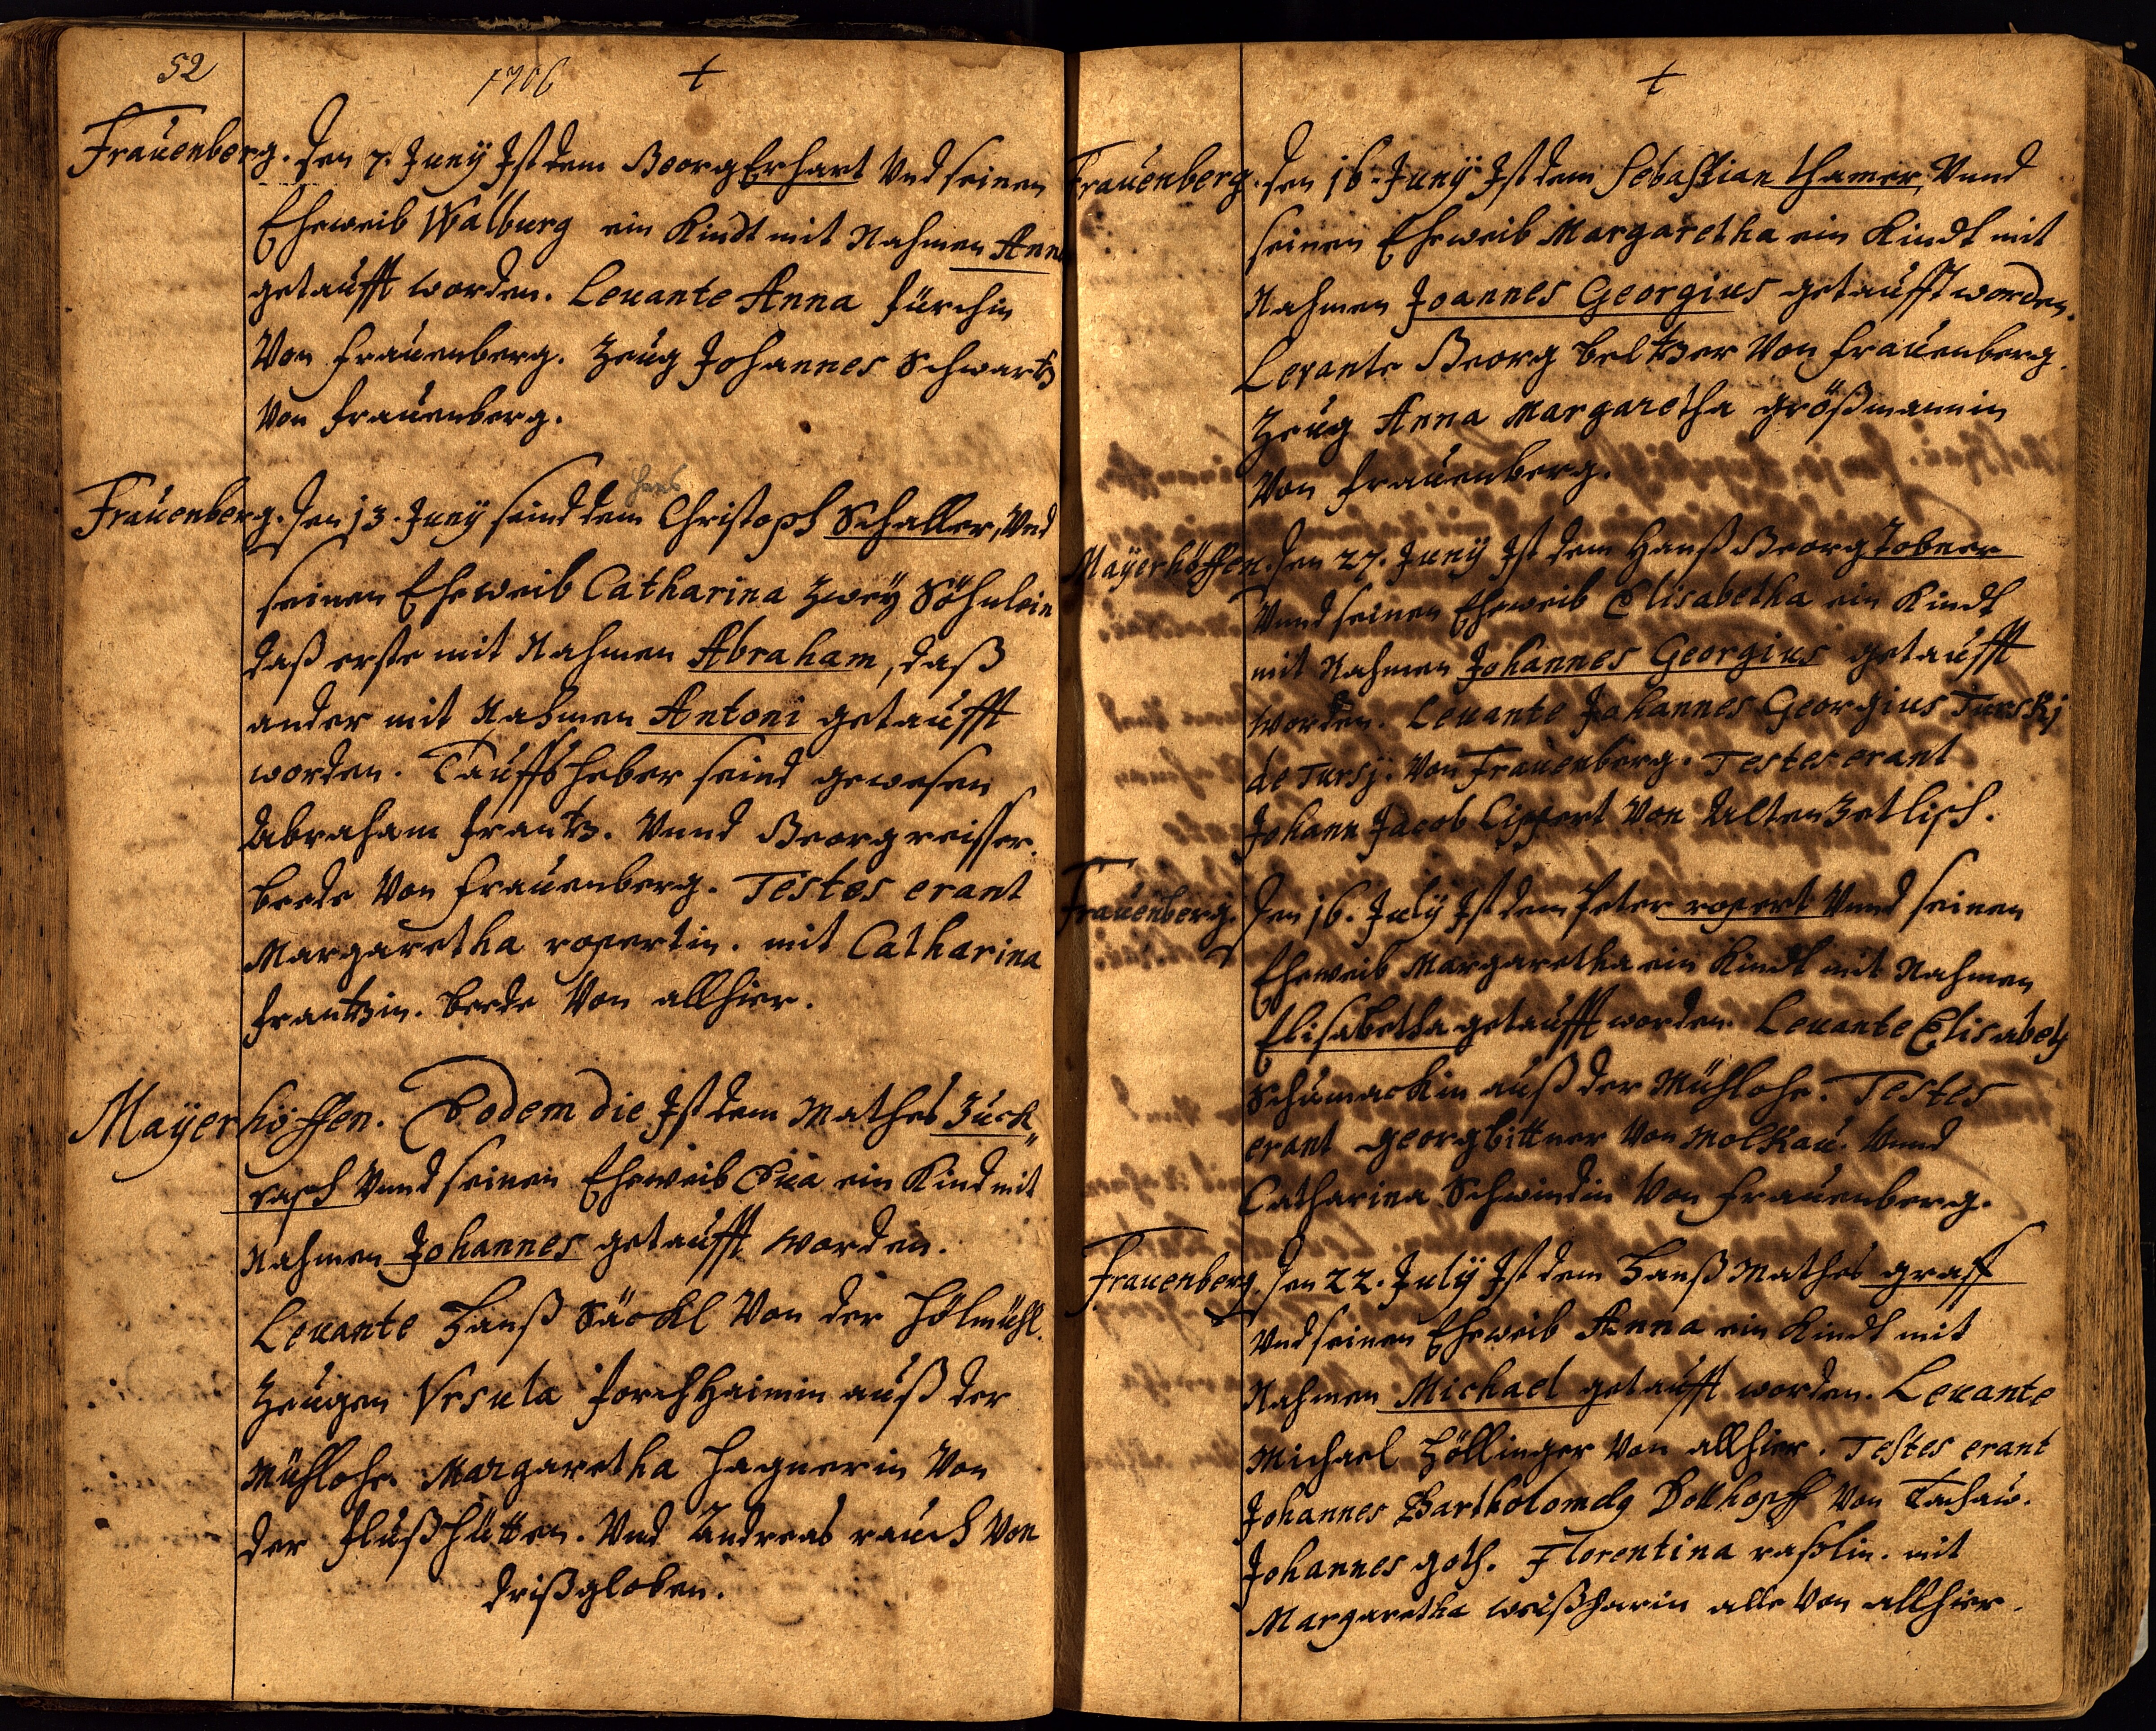 52
1706 +
Fraŭenberg. Den 7. Junÿ Ist dem Georg Erhart Vnd seinen
Eheweib Walburg ein Kindt mit Nahmen Anna
getaŭfft worden. Leuante Anna fürchin
Von fraŭenberg. Zeŭg Johannes Schwartz
Von fraŭenberg.
Hans
Fraŭenberg. Den 13. Junÿ seind dem Christoph Schaller, Vnd
seinen Eheweib Catharina Zweÿ Söhnlein
daß erste mit Nahmen Abraham, daß
ander mit Nahmen Antoni getaŭfft
worden. Taŭffsheber seind gewesen
Abraham frantz. Vnnd Georg reisser.
beede Von fraŭenberg. Testes erant
Margaretha ropertin. mit Catharina
frantzin. beede Von allhier.
Maÿerhöffen. Eodem die Ist dem Mathes Zuck„
rasch Vnnd seinen Eheweib Eua ein Kind mit
Nahmen Johannes getaŭfft worden.
Leuante Hanß Säckl Von der Hölmühl.
Zeŭgen Vrsula forchhaimin aŭß der
Mühlohe. Margaretha Hagnerin Von
der flŭßhütten. Vnd Andreas rauch Von
drißgloben.
+
Fraŭenberg. Den 16. Junÿ Ist dem Sebastian thamer, Vnnd
seinen Eheweib Margaretha ein Kindt mit
Nahmen Joannes Georgius getaŭfft worden.
Levante Georg beltzer Von fraŭenberg.
Zeŭg Anna Margaretha größmannin
Von fraŭenberg.
Maÿerhöffen. Den 27. Junÿ Ist dem Hanß Georg Tobner
Vnnd seinen Eheweib Elisabetha ein Kindt
mit Nahmen Johannes Georgius getaŭfft
worden. Leuante Johannes Georgius Turskj
de Tursj. Von Fraŭenberg. Testes erant
Johann Jacob Lippert Von Alten Zetlisch.
Fraŭenberg. Den 16. Julÿ Ist dem Peter ropert Vnnd seinen
Eheweib Margaretha ein Kindt mit Nahmen
Elisabetha getaŭfft worden. Leuante Elisabeth
Schŭmackin aŭß der Mühlohe. Testes
erant georg bittner Von Molkaŭ. Vnnd
Catharina Schwindin Von fraŭenberg.
Frauenberg. Den 22. Julÿ Ist dem Hanß Mathes graff
Vnd seinen Eheweib Anna ein Kindt mit
Nahmen Michael getaŭfft worden. Leuante
Michael Höllinger Von allhier. Testes erant
Johannes Bartholomeÿ Dollhopff Von Tachaŭ.
Johannes goth. Florentina raßlin. mit
Margaretha weißharin alle Von allhier.